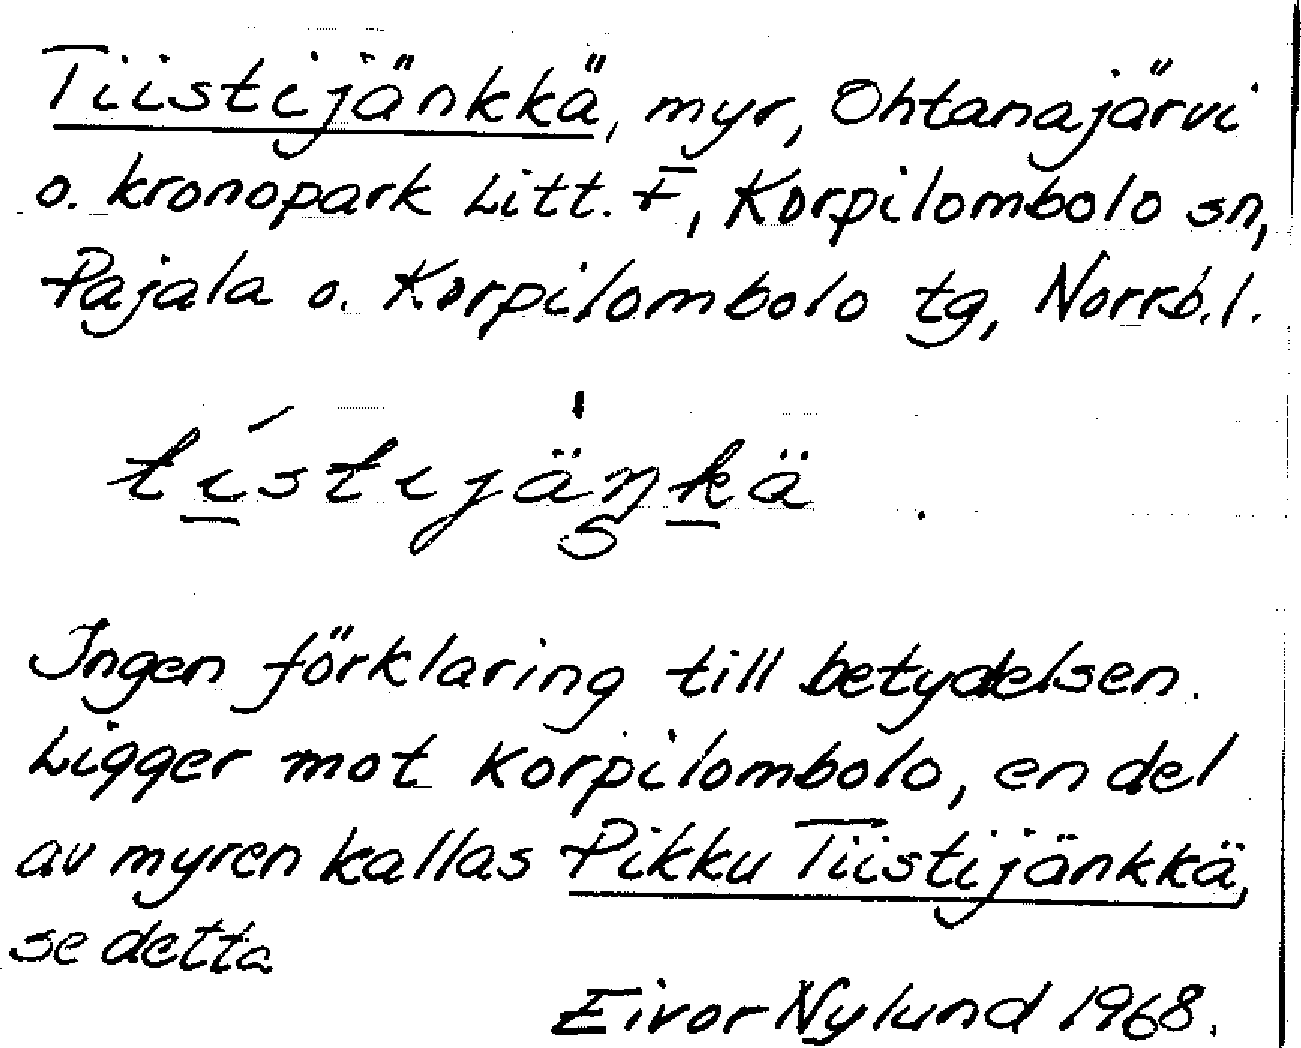 Tiistijänkkä, myr, Ohtanajärvi
o. kronopark Litt. F, Korpilombolo sn,
Pajala o. Korpilombolo tg, Norrb.l.
tí̱stijäŋḵä
Ingen förklaring till betydelsen.
Ligger mot Korpilombolo, en del
av myren kallas Pikku Tiistijänkkä,
se detta
Eivor Nylund 1968.